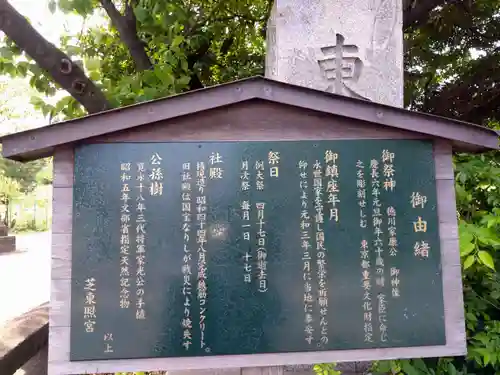 東
御由緒
御祭神 徳川家康公 御神像
慶長六年元旦御年六十歳の砌 家臣に命じ
之を彫刻せしむ 東京都重要文化財指定
御鎮座年月
永世国家を守護し国民の繁栄を祈願せよとの
仰せにより元和三年三月に当地に奉安す
祭日
例大祭 四月十七日(御命日)
月次祭 毎月一日 十七日
社殿
権現造り 昭和四十四年八月完成鉄筋コンクリート
旧社殿は国宝なりしが戦災により焼失す
公孫樹
寛永十八年三代将軍家光公の手植
昭和五年文部省指定天然記念物
芝東照宮
以上